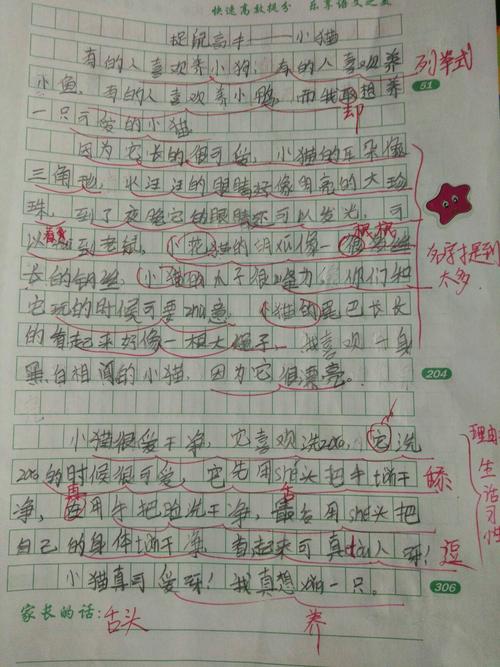 快速高效提分 乐享语文之 
捉鼠高手——小猫
有的人喜欢养小狗,有的人喜欢养 列举式
小鱼,有的人喜欢养小鸭,而我想养 51
一只可爱的小猫。 却
因为它长的很可爱,小猫的耳朵像
三角地,水汪汪的眼睛好像明亮的大珍
珠,到了夜晚它的眼睛还可以发光,可
以看到老鼠,小花猫的胡须像一根
长的钢丝,小猫的 名字提到
它玩的时候可要zhu意,小猫的尾巴长长 太多
的看起来好像一根大绳子,我喜欢一身
黑白相间的小猫,因为它很漂亮。 204
小猫很爱干净,它喜欢洗zao,它洗 理由:
zao的时候很可爱,它先用she头把手tian干 舔 生活习性
净,再用手把脸洗干净,最后用she头把 舌
自己的身体tian干净,看起来可真dou人呀! 逗
小猫真可爱呀!我真想 一只。 306
家长的话: 舌头 养